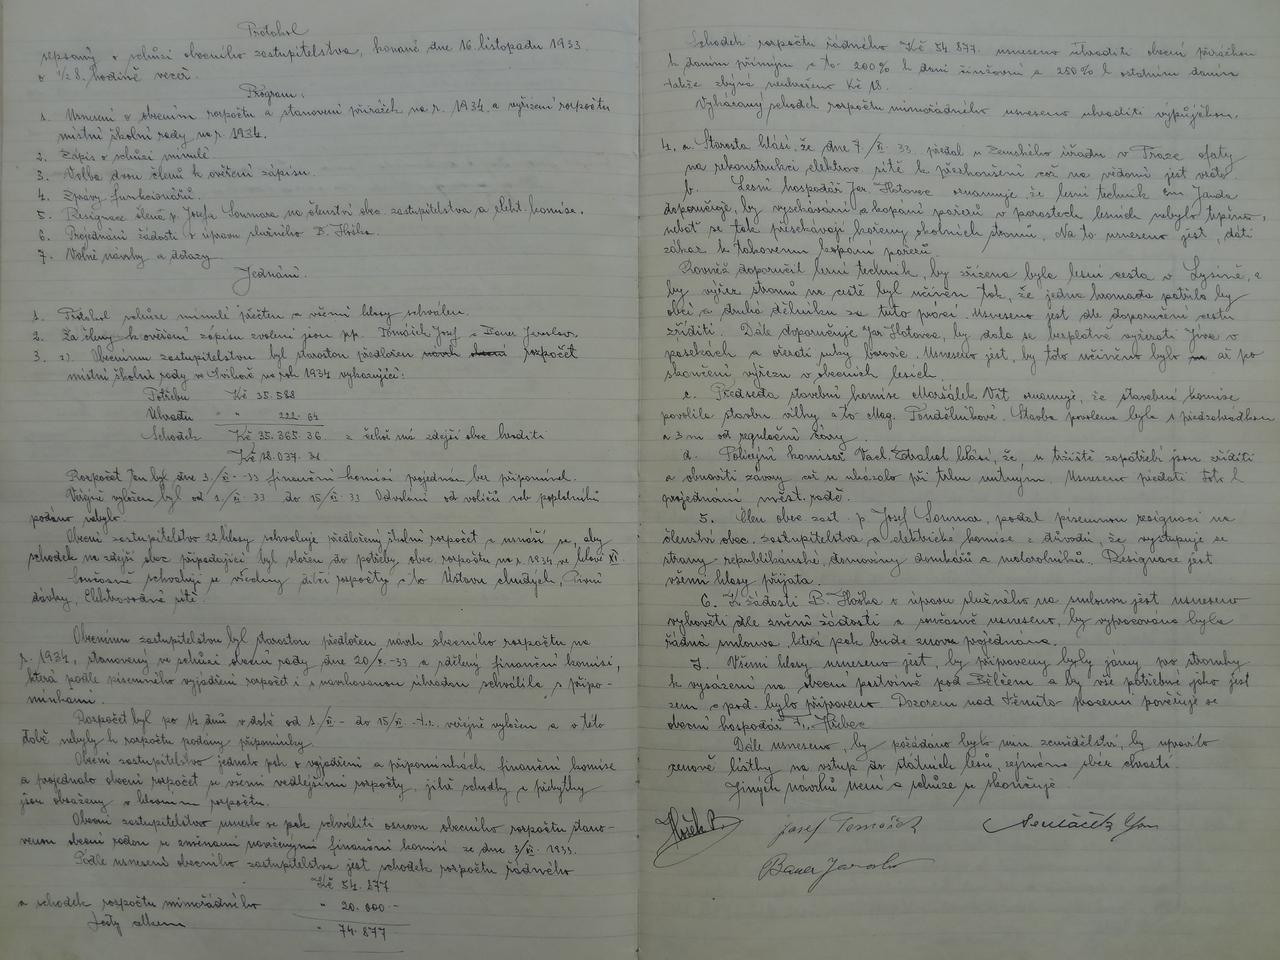 Protokol
sepsaný o schůzi obecního zastupitelstva, konané dne 16. listopadu 1933
o 1/2 8. hodině večer.
Program:
1. Usnesení o obecním rozpočtu a stanovení přirážek na r. 1934 a vyřízení rozpočtu
místní školní rady na r. 1934.
2. Zápis o schůzi minulé.
3. Volba dvou členů k ověření zápisu.
4. Zprávy funkcionářů.
5. Resignace člena p. Josefa Soumara na členství obec. zastupitelstva a elektr. komise.
6. Projednání žádosti o úpravu služného B. Hoška.
7. Volné návrhy a dotazy.
Jednání.
1. Protokol schůze minulé přečten a všemi hlasy schválen.
2. Za členy k ověření zápisu zvoleni jsou pp. Tomášek Josef a Bauer Jaroslav.
3. Obecnímu zastupitelstvu byl starostou předložen rozpočet
místní školní rady ve na rok 1934 vykazující:
Potřebu Kč 35.588
Úhradu " 222.64
Schodek Kč 35.365.36 z čehož má zdejší obec hraditi
Kč 18.037.31
Rozpočet ten byl dne 3/XI -33 finanční komisí projednán bez připomínek.
Veřejně vyložen byl od 1/XI 33 do 15/XI 33 Odvolání od voličů neb poplatníků
podáno nebylo.
Obecní zastupitelstvo 22 hlasy schvaluje předložený školní rozpočet a usnáší se, aby
schodek na zdejší obec připadající byl vložen do potřeby obec. rozpočtu na r. 1934 ve hlavě XI.
Současně schvalují se všechny dílčí rozpočty a to Ústavu chudých,
dávky, Elektrovodné sítě.
Obecnímu zastupitelstvu byl starostou předložen návrh obecního rozpočtu na
r. 1934, stanovený ve schůzi obecní rady dne 20/X -33 a sdělený finanční komisi,
která podle písemného vyjádření rozpočet i s navrhovanou úhradou schválila, s připo-
mínkami.
Rozpočet byl po 14 dnů v době od 1/XI - do 15/XI -t.r. veřejně vyložen a v této
době nebyly k rozpočtu podány připomínky.
Obecní zastupitelstvo jednalo pak o vyjádření a připomínkách finanční komise
a projednalo obecní rozpočet se všemi vedlejšími rozpočty, jichž schodky a přebytky
jsou obsaženy v hlavním rozpočtu.
Obecní zastupitelstvo usneslo se pak schváliti osnovu obecního rozpočtu stano-
venou obecní radou se změnami navrženými finanční komisí ze dne 3/XI 1933.
Podle usnesení obecního zastupitelstva jest schodek rozpočtu řádného
Kč 54.877
a schodek rozpočtu mimořádného " 20.000 -
Tedy celkem " 74.877
Schodek rozpočtu řádného Kč 54.877. usneseno uhraditi obecní přirážkou
k daním přímým a to 200% k dani činžovní a 250% k ostatním daním
takže zbývá neuhrazeno Kč 18.
Vykázaný schodek rozpočtu mimořádného usneseno uhraditi výpůjčkou.
4. a. Starosta hlásí, že dne 7/XI 33 předal u Zemského úřadu v Praze oferty
na rekonstrukci elektrov. sítě k přezkoušení což na vědomí jest vzato.
b. Lesní hospodář Jar. Hotovec oznamuje, že lesní technik Em. Janda
doporučuje, by vyschávání a kopání pařezů v porostech lesních nebylo trpěno,
neboť se tak přesekávají kořeny okolních stromů. Na to usneseno jest, dáti
zákaz k takovému kopání pařezů.
Rovněž doporučil lesní technik, by zřízena byla lesní cesta v Lysině, a
by výřez stromů na cestě byl učiněn tak, že jedna hromada patřila by
obci a druhá dělníku za tuto práci. Usneseno jest dle doporučení cestu
zříditi. Dále doporučuje Jar. Hotovec, by dala se bezplatně vyřezati jíva v
pasekách a ořezati suky borovic. Usneseno jest, by toto učiněno bylo až po
skončení výřezu v obecních lesích.
c. Předseda stavební komise Maršálek Vít oznamuje, že stavební komise
povolila stavbu vilky a to Mag. Pondělníkové. Stavba povolena byla s předzahrádkou
a 3 m od regulační čáry.
d. Policejní komisař Václ. Zdrahal hlásí, že, u tržiště zapotřebí jsou zříditi
a obnoviti závory což se ukázalo při trhu nutným. Usneseno předati toto k
projednání měst. radě.
5. Člen obec. zast. p. Josef Soumar, podal písemnou resignaci na
členství obec. zastupitelstva a elektrické komise z důvodů, že vystupuje se
strany republikánské, domoviny domkářů a malorolníků. Resignace jest
všemi hlasy přijata.
6. K žádosti B. Hoška o úpravu služného na smlouvu jest usneseno
vyhověti dle znění žádosti a současně usneseno, by vypracována byla
řádná smlouva, která pak bude znovu projednána.
7. Všemi hlasy usneseno jest, by připraveny byly jámy pro stromky
k vysázení na obecní pastvině pod a by vše potřebné jako jest
zem a pod. bylo připraveno. Dozorem nad těmito pracemi pověřuje se
obecní hospodář Fr. Hribec.
Dále usneseno, by požádáno bylo min. zemědělství, by upravilo
cenově lístky na vstup do státních lesů, zejména sběr chrastí.
Jiných návrhů není a schůze se skončuje.
Hošek B. Josef Tomášek
Bauer Jaroslav